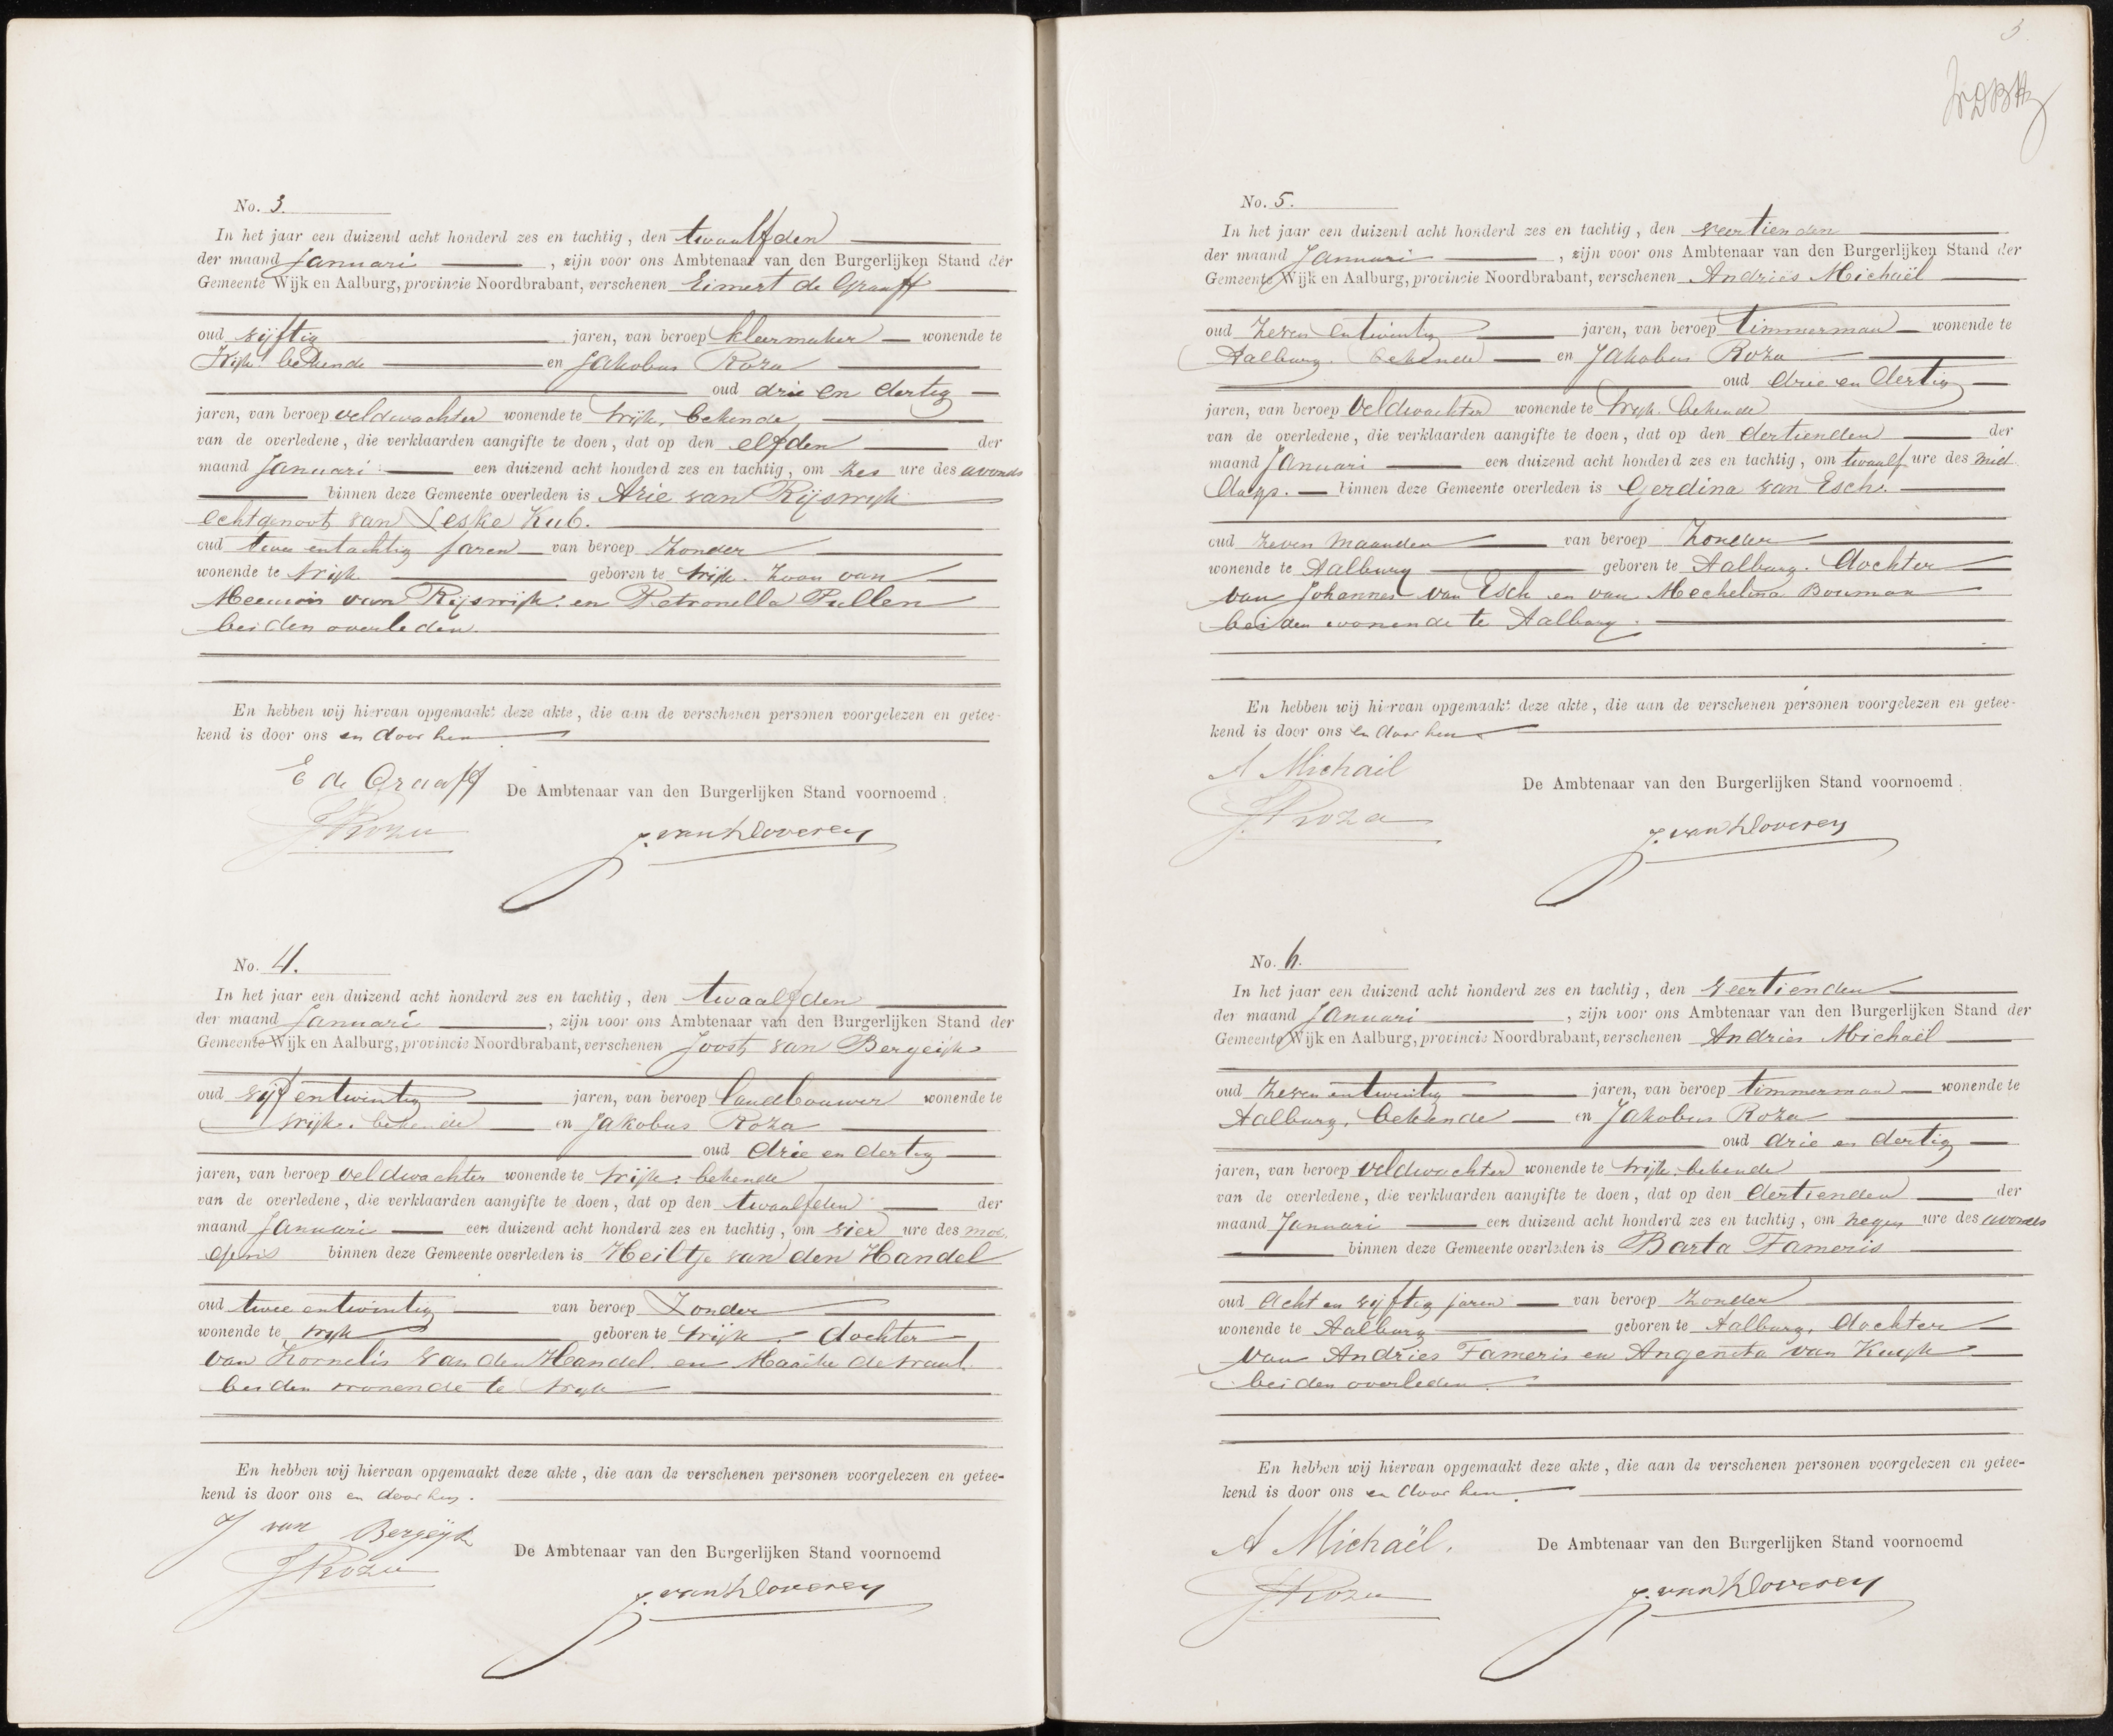 No. 3.
In het jaar een duizend acht honderd zes en tachtig, den twaalfden
der maand Januari, zijn voor ons Ambtenaar van den Burgerlijken Stand der
Gemeente Wijk en Aalburg, provincie Noordbrabant, verschenen Eimert de Graaff
oud vijftig jaren, van beroep kleermaker wonende te
Wijk. bekende en Jakobus Roza
oud drie en dertig
jaren, van beroep veldwachter wonende te Wijk, bekende
van de overledene, die verklaarden aangifte te doen, dat op den elfden der
maand Januari een duizend acht honderd zes en tachtig, om zes ure des avonds
binnen deze Gemeente overleden is Arie van Rijswijk
echtgenoot van Leske Kub.
oud twee entachtig jaren van beroep Zonder
wonende te Wijk geboren te Wijk. Zoon van
van Rijswijk en Petronella Pullen
beiden overleden.
En hebben wij hiervan opgemaakt deze akte, die aan de verschenen personen voorgelezen en getee-
kend is door ons en door hen
E de Graaff
De Ambtenaar van den Burgerlijken Stand voornoemd
J Roza
No. 4.
In het jaar een duizend acht honderd zes en tachtig, den twaalfden
der maand Januari, zijn voor ons Ambtenaar van den Burgerlijken Stand der
Gemeente Wijk en Aalburg, provincie Noordbrabant, verschenen Joost van Bergeijk
oud vijf entwintig jaren, van beroep landbouwer wonende te
Wijk. bekende en Jakobus Roza
oud drie en dertig
jaren, van beroep veldwachter wonende te Wijk. bekende
van de overledene, die verklaarden aangifte te doen, dat op den twaalfden der
maand Januari een duizend acht honderd zes en tachtig, om vier ure des mor
gens binnen deze Gemeente overleden is Heiltje van den Handel
oud twee entwintig van beroep Zonder
wonende te Wijk geboren te Wijk. dochter
van Kornelis van den Handel en Maaike
beiden wonende te Wijk
En hebben wij hiervan opgemaakt deze akte, die aan de verschenen personen voorgelezen en getee-
kend is door ons en door hen.
J van Bergeijk
De Ambtenaar van den Burgerlijken Stand voornoemd
J Roza
3
No. 5.
In het jaar een duizend acht honderd zes en tachtig, den veertienden
der maand Januari, zijn voor ons Ambtenaar van den Burgerlijken Stand der
Gemeente Wijk en Aalburg, provincie Noordbrabant, verschenen Andries Michaël
oud Zeven entwintig jaren, van beroep timmerman wonende te
Aalburg. bekende en Jakobus Roza
oud drie en dertig
jaren, van beroep veldwachter wonende te Wijk. bekende
van de overledene, die verklaarden aangifte te doen, dat op den dertienden der
maand Januari een duizend acht honderd zes en tachtig, om twaalf ure des mid
dags. binnen deze Gemeente overleden is Gerdina van Esch.
oud zeven maanden van beroep Zonder
wonende te Aalburg geboren te Aalburg. dochter
van Johannes van Esch en van Mechelina Bouman
beiden wonende te Aalburg.
En hebben wij hiervan opgemaakt deze akte, die aan de verschenen personen voorgelezen en getee-
kend is door ons en door hen
A Michaël
De Ambtenaar van den Burgerlijken Stand voornoemd
J. Roza
No. 6.
In het jaar een duizend acht honderd zes en tachtig, den veertienden
der maand Januari, zijn voor ons Ambtenaar van den Burgerlijken Stand der
Gemeente Wijk en Aalburg, provincie Noordbrabant, verschenen Andries Michaël
oud Zeven entwintig jaren, van beroep timmerman wonende te
Aalburg. bekende en Jakobus Roza
oud drie en dertig
jaren, van beroep veldwachter wonende te Wijk. bekende
van de overledene, die verklaarden aangifte te doen, dat op den dertienden der
maand Januari een duizend acht honderd zes en tachtig, om negen ure des avonds
binnen deze Gemeente overleden is Barta Fameris
oud acht en vijftig jaren van beroep Zonder
wonende te Aalburg geboren te Aalburg. dochter
van Andries Fameris en Angenita van
beiden overleden.
En hebben wij hiervan opgemaakt deze akte, die aan de verschenen personen voorgelezen en getee-
kend is door ons en door hen.
A Michaël.
De Ambtenaar van den Burgerlijken Stand voornoemd
J. Roza